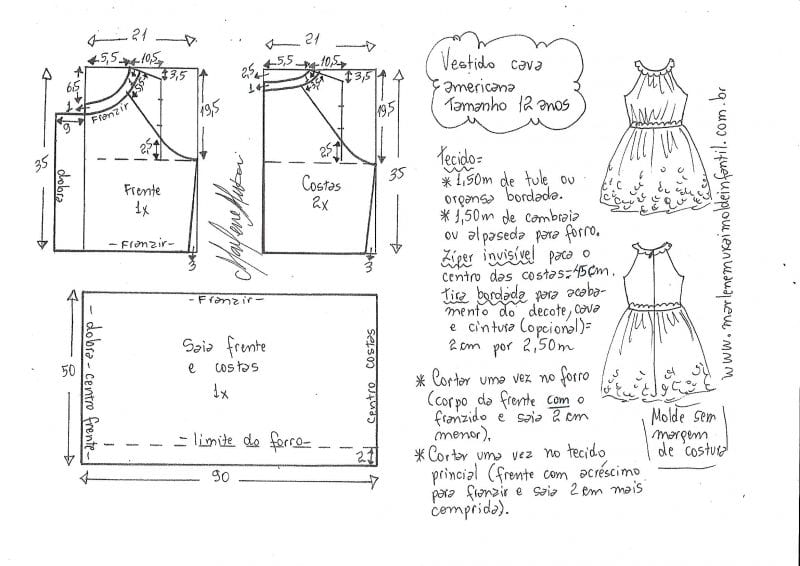 21
5,5 10,5
3,5
6,5
9,5
1
Franzir
9
19,5
2,5
35
dobra
Frente
1x
-Franzir-
3
21
5,5 10,5
2,5
3,5
9,5
1
19,5
2,5
35
Costas
2x
3
Marlene Mukai
Vestido cava
americana
Tamanho 12 anos
Tecido=
* 1,50m de tule ou
organsa bordada.
* 1,50m de cambraia
ou alpaseda para forro.
Zíper invisível para o
centro das costas=45cm.
Tira bordada para acaba-
mento do decote, cava
e cintura (opcional)=
2cm por 2,50m
* Cortar uma vez no forro
(corpo da frente com o
franzido e saia 2cm
menor).
* Cortar uma vez no tecido
princial (frente com acréscimo
para franzir e saia 2cm mais
comprida).
www.marlenemukaimoldeinfantil.com.br
Molde sem
margem
de costura
- Franzir -
50
- dobra - centro frente -
Saia frente
e costas
1x
centro costas
- limite do forro-
2
90